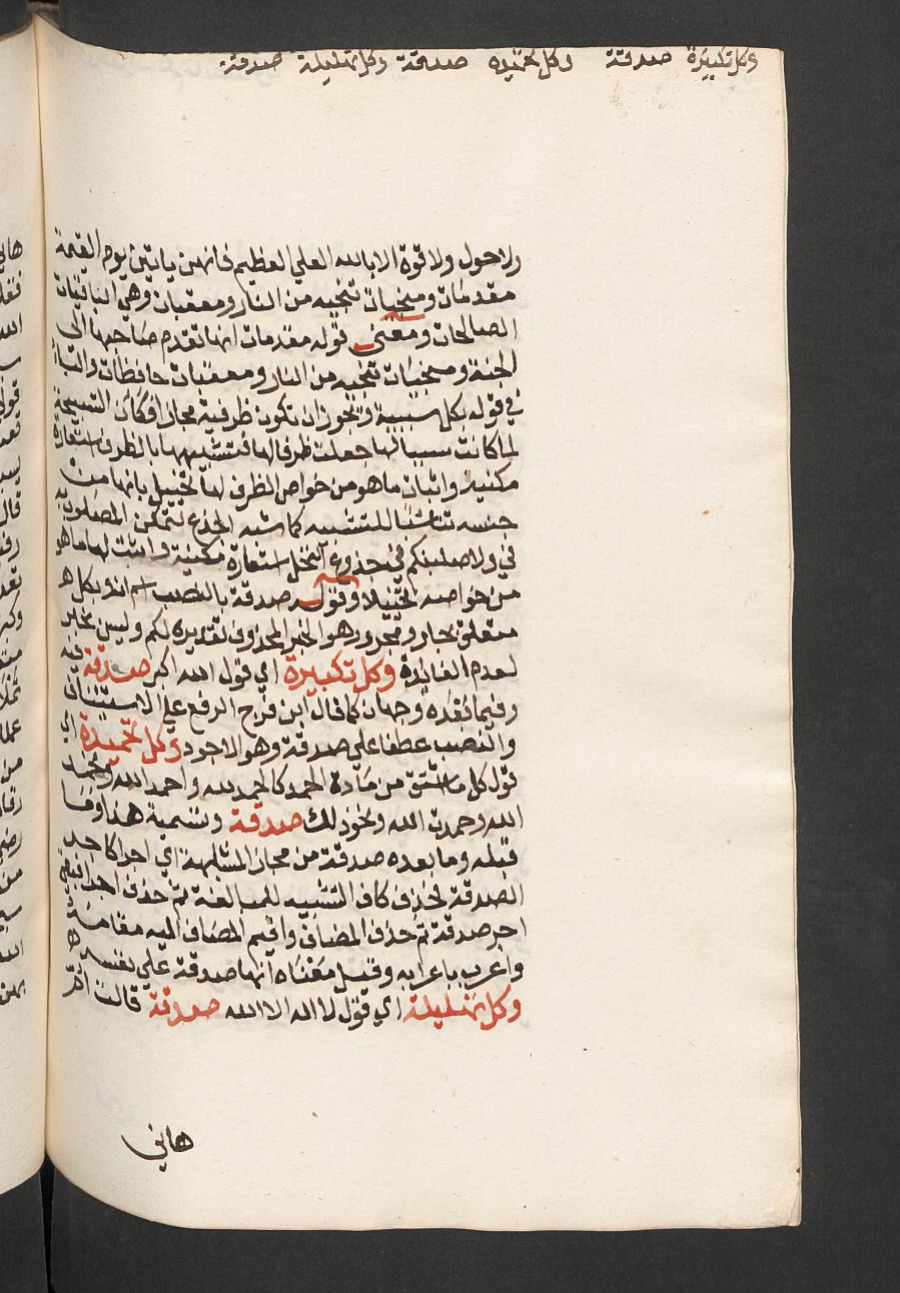 وكل تكبيرة صدقة وكل تحميده صدقة وكل تهليلة صدقة
ولا حول ولا قوة الا بالله العلي العظيم فانهن ياتين يوم القيمة
مقدمات ومنجيات تنجيه من النار ومعقبات وهي الباقيات
الصالحات ومعنى قوله مقدمات انها تقدم صاحبها الى
الجنة ومنجيات تنجيه من النار ومعقبات حافظات والباء
في قوله بكل سببية ويجوز ان تكون ظرفية مجازا فكان التسبيحة
لما كانت سببا لها جعلت ظرفا لها فتشبيهها بالظرف استعارة
مكنية واثبات ما هو من خواص الظرف لها تخييل بانها من
جنسه تناسيا للتشبيه كما شبه الجذع لتمكن المصلوب به
في ولاصلبنكم في جذوع النخل استعارة مكنية واثبت لها ما هو
من خواصه تخييلا وقوله صدقة بالنصب اسم ان وبكل هو
متعلق بجار ومجرور هو الخبر المحذوف تقديره لكم وليس بخبر
لعدم الفايدة وكل تكبيرة اي قول الله اكبر صدقة فيه
وفيما بعده وجهان كما قال ابن فرح الرفع علي الاستئناف
والنصب عطفا علي صدقة وهو الاجود وكل تحميدة اي
قول كل ما اشتق من مادة الحمد كالحمد لله واحمد الله ونحمد
الله وحمدت الله ونحو ذلك صدقة وتسمية هذا وما
قبله وما بعده صدقة من مجاز المشابهة اي اجرا كاجر
الصدقة بحذف كاف التشبيه للمبالغة ثم حذف اجرا فبقي
اجر صدقة ثم حذف المضاف واقيم المضاف اليه مقامه
واعرب باعرابه وقيل معناه انها صدقة علي نفسه
وكل تهليلة اي قول لا اله الا الله صدقة قالت ام
هاني